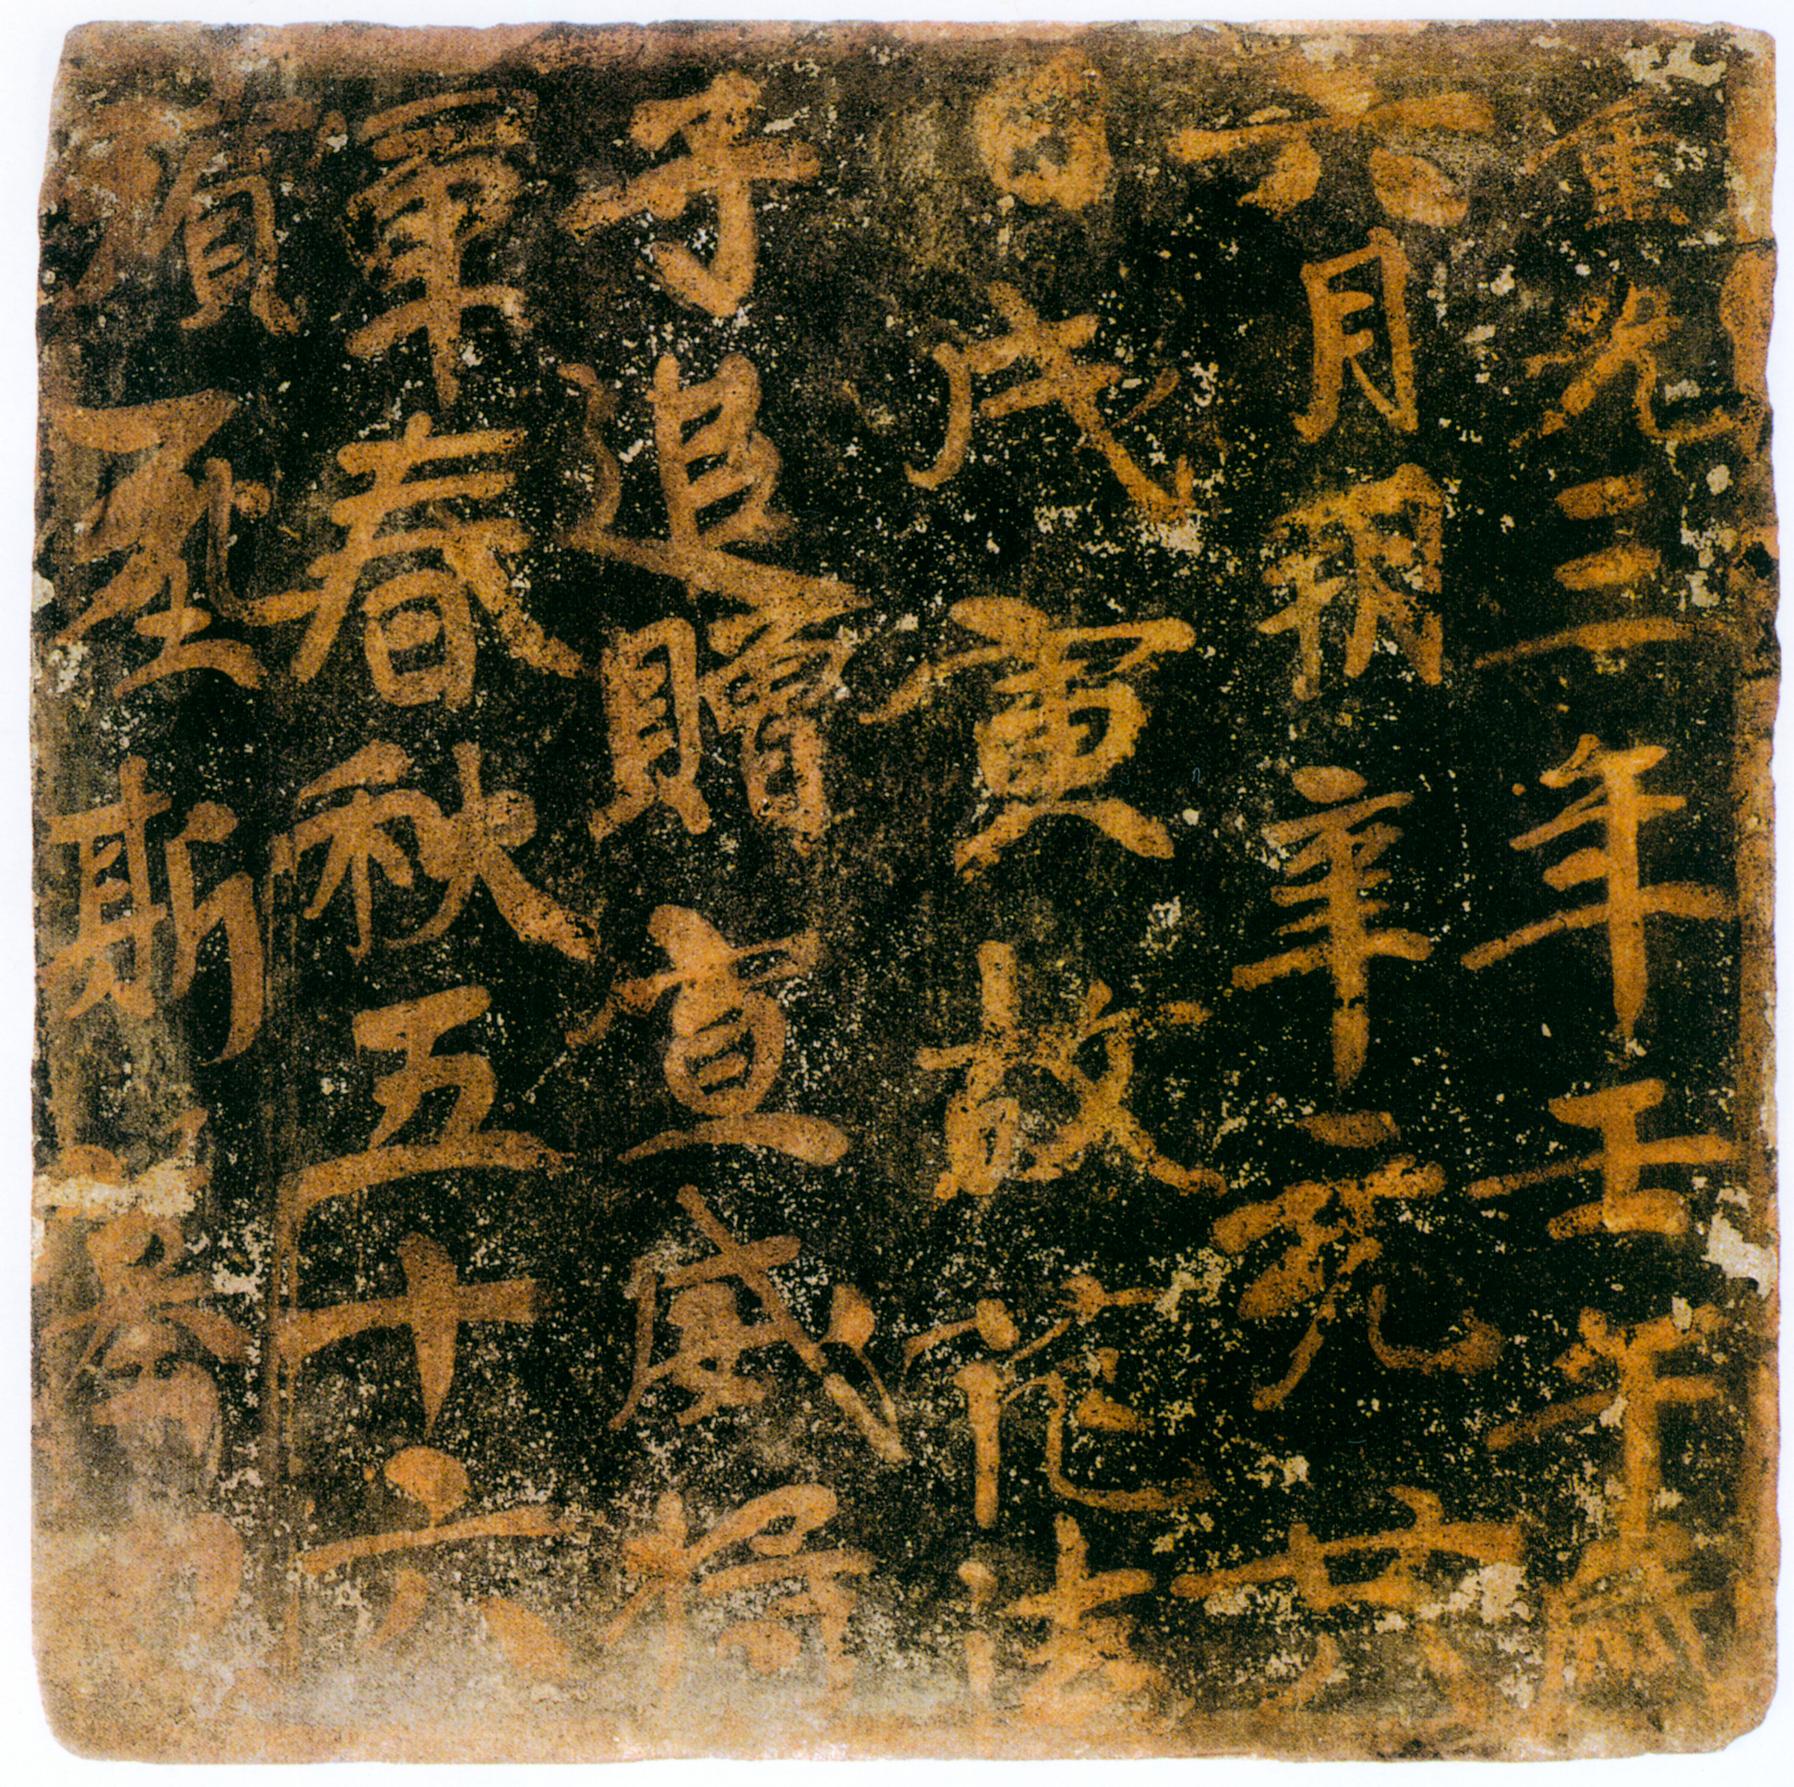 重光三年壬午歲
六月朔辛亥廿八
日戊寅故氾法
子追贈宣威將
軍春秋五十六
殯至斯墓